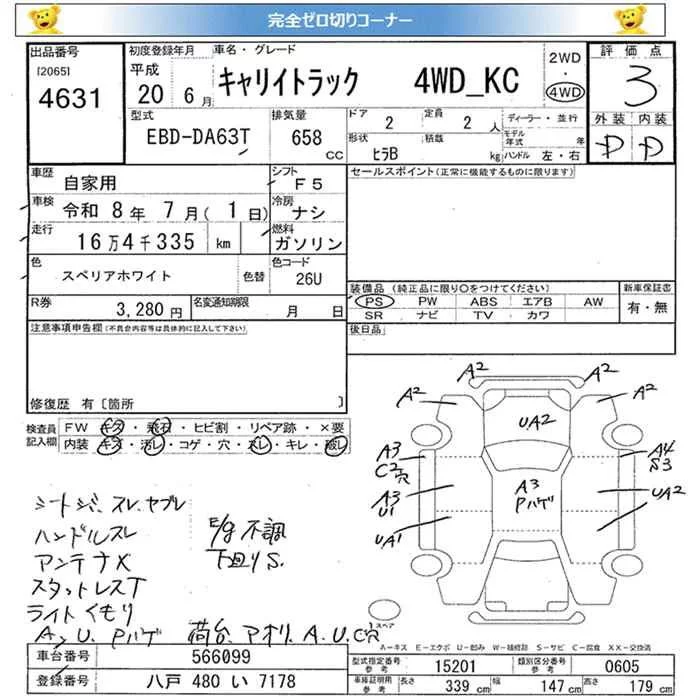 完全ゼロ切りコーナー
出品番号
[2065]
4631
初度登録年月
平成
20 6月
車名・グレード
キャリイトラック 4WD_KC
2WD
・
4WD
評価点
3
外装 内装
D D
型式
EBD-DA63T
排気量
658 CC
ドア
2
定員
2 人
形状
ヒラB
積載
kg
ディーラー・並行
モデル年式 年
ハンドル 左・右
車歴
自家用
シフト
F5
車検
令和 8年 7月( 1日)
冷房
ナシ
走行
16万4千335 km
燃料
ガソリン
色
スペリアホワイト
色替
色コード
26U
R券
3,280円
名変通知期限
月 日
セールスポイント(正常に機能するものに限ります)
装備品 (純正品に限り〇をつけてください)
PS PW ABS エアB AW
SR ナビ TV カワ
新車保証書
有・無
後日品
注意事項申告欄(不具合内容等は具体的に記入して下さい)
修復歴 有〔箇所 〕
検査員記入欄
FW キズ・飛石・ヒビ割・リペア跡・×要
内装 キズ・汚レ・コゲ・穴・スレ・キレ・破レ
シートジミ、スレ、ヤブレ
ハンドルスレ
アンテナX
スタットレスT
ライトくもり
A、U、Pハゲ 荷台、アオリ、A、U、C穴
E/g不調
下回りS.
A2 A2
A2 A2
UA2
A3
C2穴
A3
U1
UA1
A3
Pハゲ
A4
S3
UA2
スペア
A-キズ E-エクボ U-凹み W-補修跡 S-サビ C-腐食 XX-交換済
車台番号
566099
登録番号
八戸 480 い 7178
型式指定番号
参考
15201
類別区分番号
参考
0605
車検証明用
参考
長さ 339 cm
幅 147 cm
高さ 179 cm